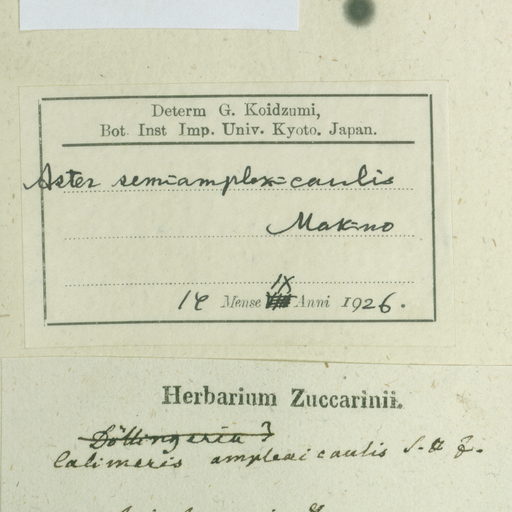 Determ G. Koidzumi,
Bot. Inst Imp. Univ. Kyoto. Japan.
Aster semiamplexicaulis
Makino
14 Mense IX Anni 1926.
Herbarium Zuccarinii.
Döllingeria ?
Calimeris amplexicaulis S. & Z.